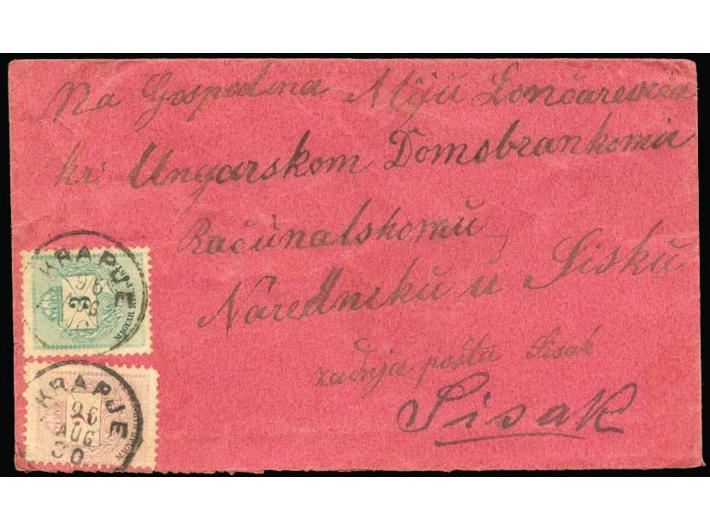 Na Gospodina Mijū Lončarevića
kr: Ungarskom Domobrankomu
Račūnalskomū
Narednikū u Siskū
zadnja pošta Sisak
Sisak
KRAPJE
96
3
KRAPJE
96
AUG
30